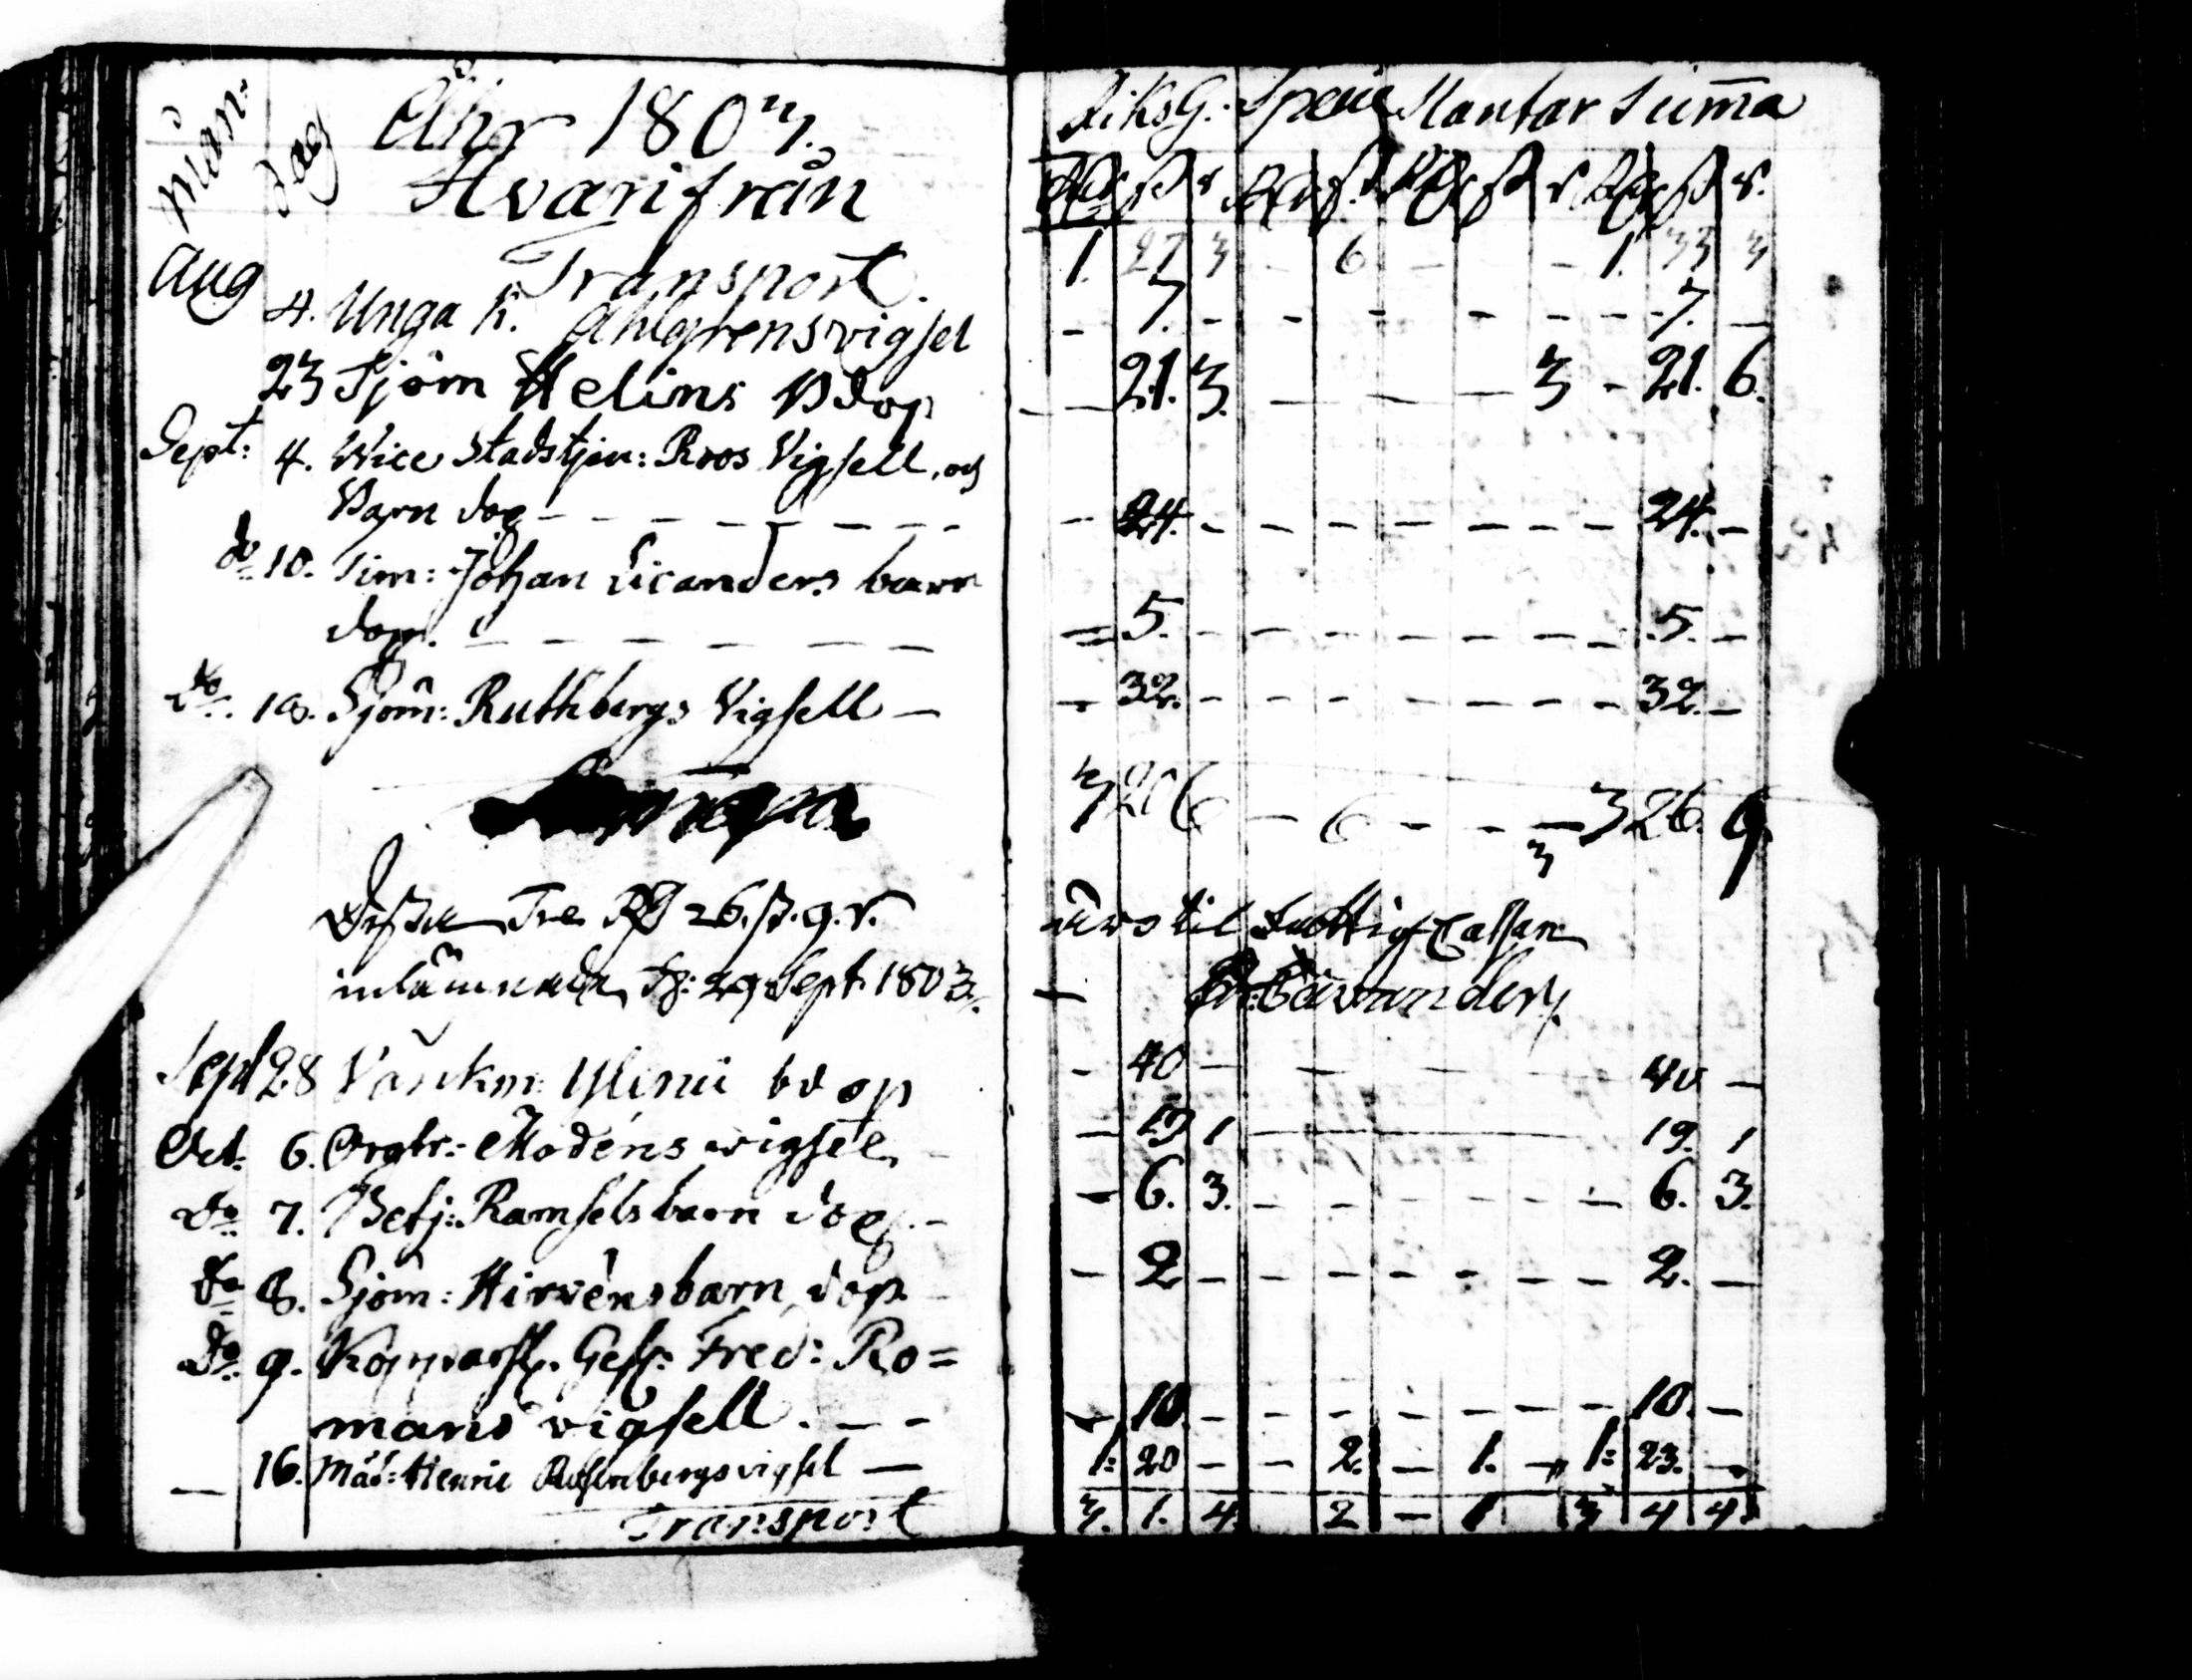 Mån: dag Åhr 1803. RiksG. Specie Plantar Summa
Hvarifrån Rd ß r Rd ß Rd ß r Rd ß r.
Aug Transport. 1. 27 3 - 6 - - 1. 33 3
4. Unga h. Ahlgrens vigsel - 7. - - - - - - - 7. -
23 Sjöm Helins Bdop - 21. 3. - - - 3 - 21. 6.
Sept: 4. Wice Stadstjen: Roos Vigsell, och
Barn dop - - - - - - - - 24. - - - - - - - 24. -
do 10. Tim: Johan Licanders barn
dop. - - - - - - - 5. - - - - - - - 5. -
do 18. Sjöm: Ruthbergs Vigsell - - 32. - - - - - - - 32. -
3 26 6 - 6 - - - 3 3 26. 9.
Dessa Tre Rd 26. ß. 9. r. til Fattig Cassan
inlämnade d: 29 Sept 1803.
Sept 28 bdop - 40 - - - - 40 -
Oct: 6. Orgbr: Modéns vigsel - - 19 1 - 19. 1
do 7. Betj: Ramsels barn dop. - - 6. 3. - - - - - - 6. 3.
do 8. Sjöm: Hirvéns barn dop - - 2 - - - - - - - 2. -
do 9. Kopparsl. Gess: Fred: Ro=
mans vigsell. - - - 10. - - - - - - - 10. -
- 16. Mäst: Henric Rosenbergs vigsel - 1: 20 - - 2. - 1. - 1: 23. -
Transport 3. 1. 4. 2 - 1 3 4 4.